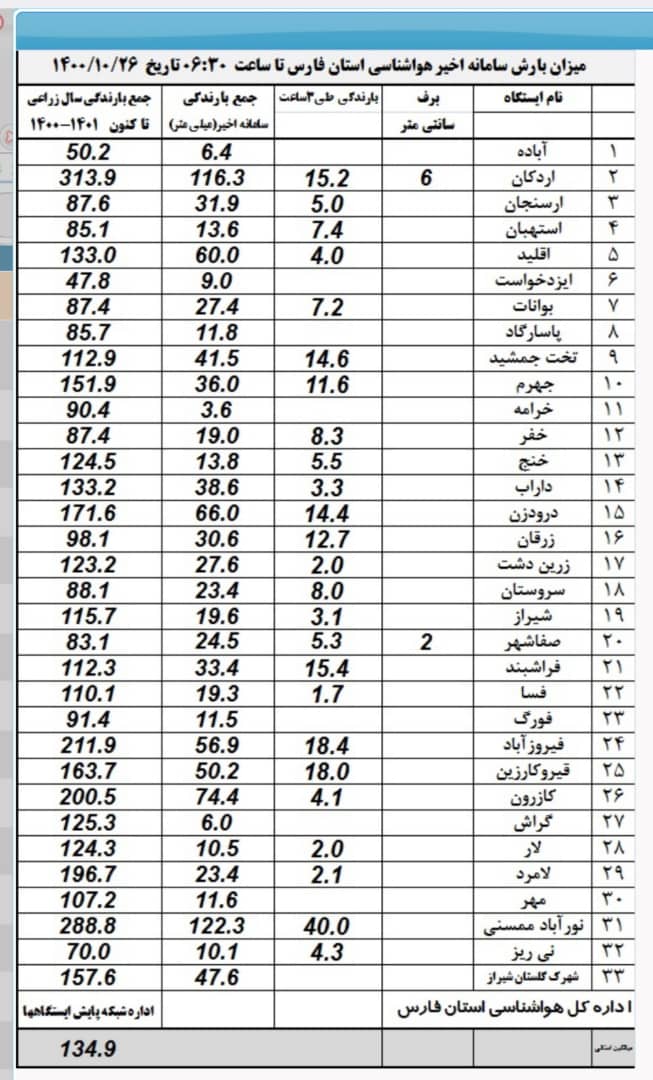 میزان بارش سامانه اخیر هواشناسی استان فارس تا ساعت ۰۶:۳۰ تاریخ ۱۴۰۰/۱۰/۲۶
نام ایستگاه برف سانتی متر بارندگی طی۳ساعت جمع بارندگی سامانه اخیر(میلی متر) جمع بارندگی سال زراعی تا کنون ۱۴۰۱-۱۴۰۰
۱ آباده 6.4 50.2
۲ اردکان 6 15.2 116.3 313.9
۳ ارسنجان 5.0 31.9 87.6
۴ استهبان 7.4 13.6 85.1
۵ اقلید 4.0 60.0 133.0
۶ ایزدخواست 9.0 47.8
۷ بوانات 7.2 27.4 87.4
۸ پاسارگاد 11.8 85.7
۹ تخت جمشید 14.6 41.5 112.9
۱۰ جهرم 11.6 36.0 151.9
۱۱ خرامه 3.6 90.4
۱۲ خفر 8.3 19.0 87.4
۱۳ خنج 5.5 13.8 124.5
۱۴ داراب 3.3 38.6 133.2
۱۵ درودزن 14.4 66.0 171.6
۱۶ زرقان 12.7 30.6 98.1
۱۷ زرین دشت 2.0 27.6 123.2
۱۸ سروستان 8.0 23.4 88.1
۱۹ شیراز 3.1 19.6 115.7
۲۰ صفاشهر 2 5.3 24.5 83.1
۲۱ فراشبند 15.4 33.4 112.3
۲۲ فسا 1.7 19.3 110.1
۲۳ فورگ 11.5 91.4
۲۴ فیروزآباد 18.4 56.9 211.9
۲۵ قیروکارزین 18.0 50.2 163.7
۲۶ کازرون 4.1 74.4 200.5
۲۷ گراش 6.0 125.3
۲۸ لار 2.0 10.5 124.3
۲۹ لامرد 2.1 23.4 196.7
۳۰ مهر 11.6 107.2
۳۱ نورآباد ممسنی 40.0 122.3 288.8
۳۲ نی ریز 4.3 10.1 70.0
۳۳ شهرک گلستان شیراز 47.6 157.6
اداره کل هواشناسی استان فارس اداره شبکه پایش ایستگاهها
میانگین استانی 134.9